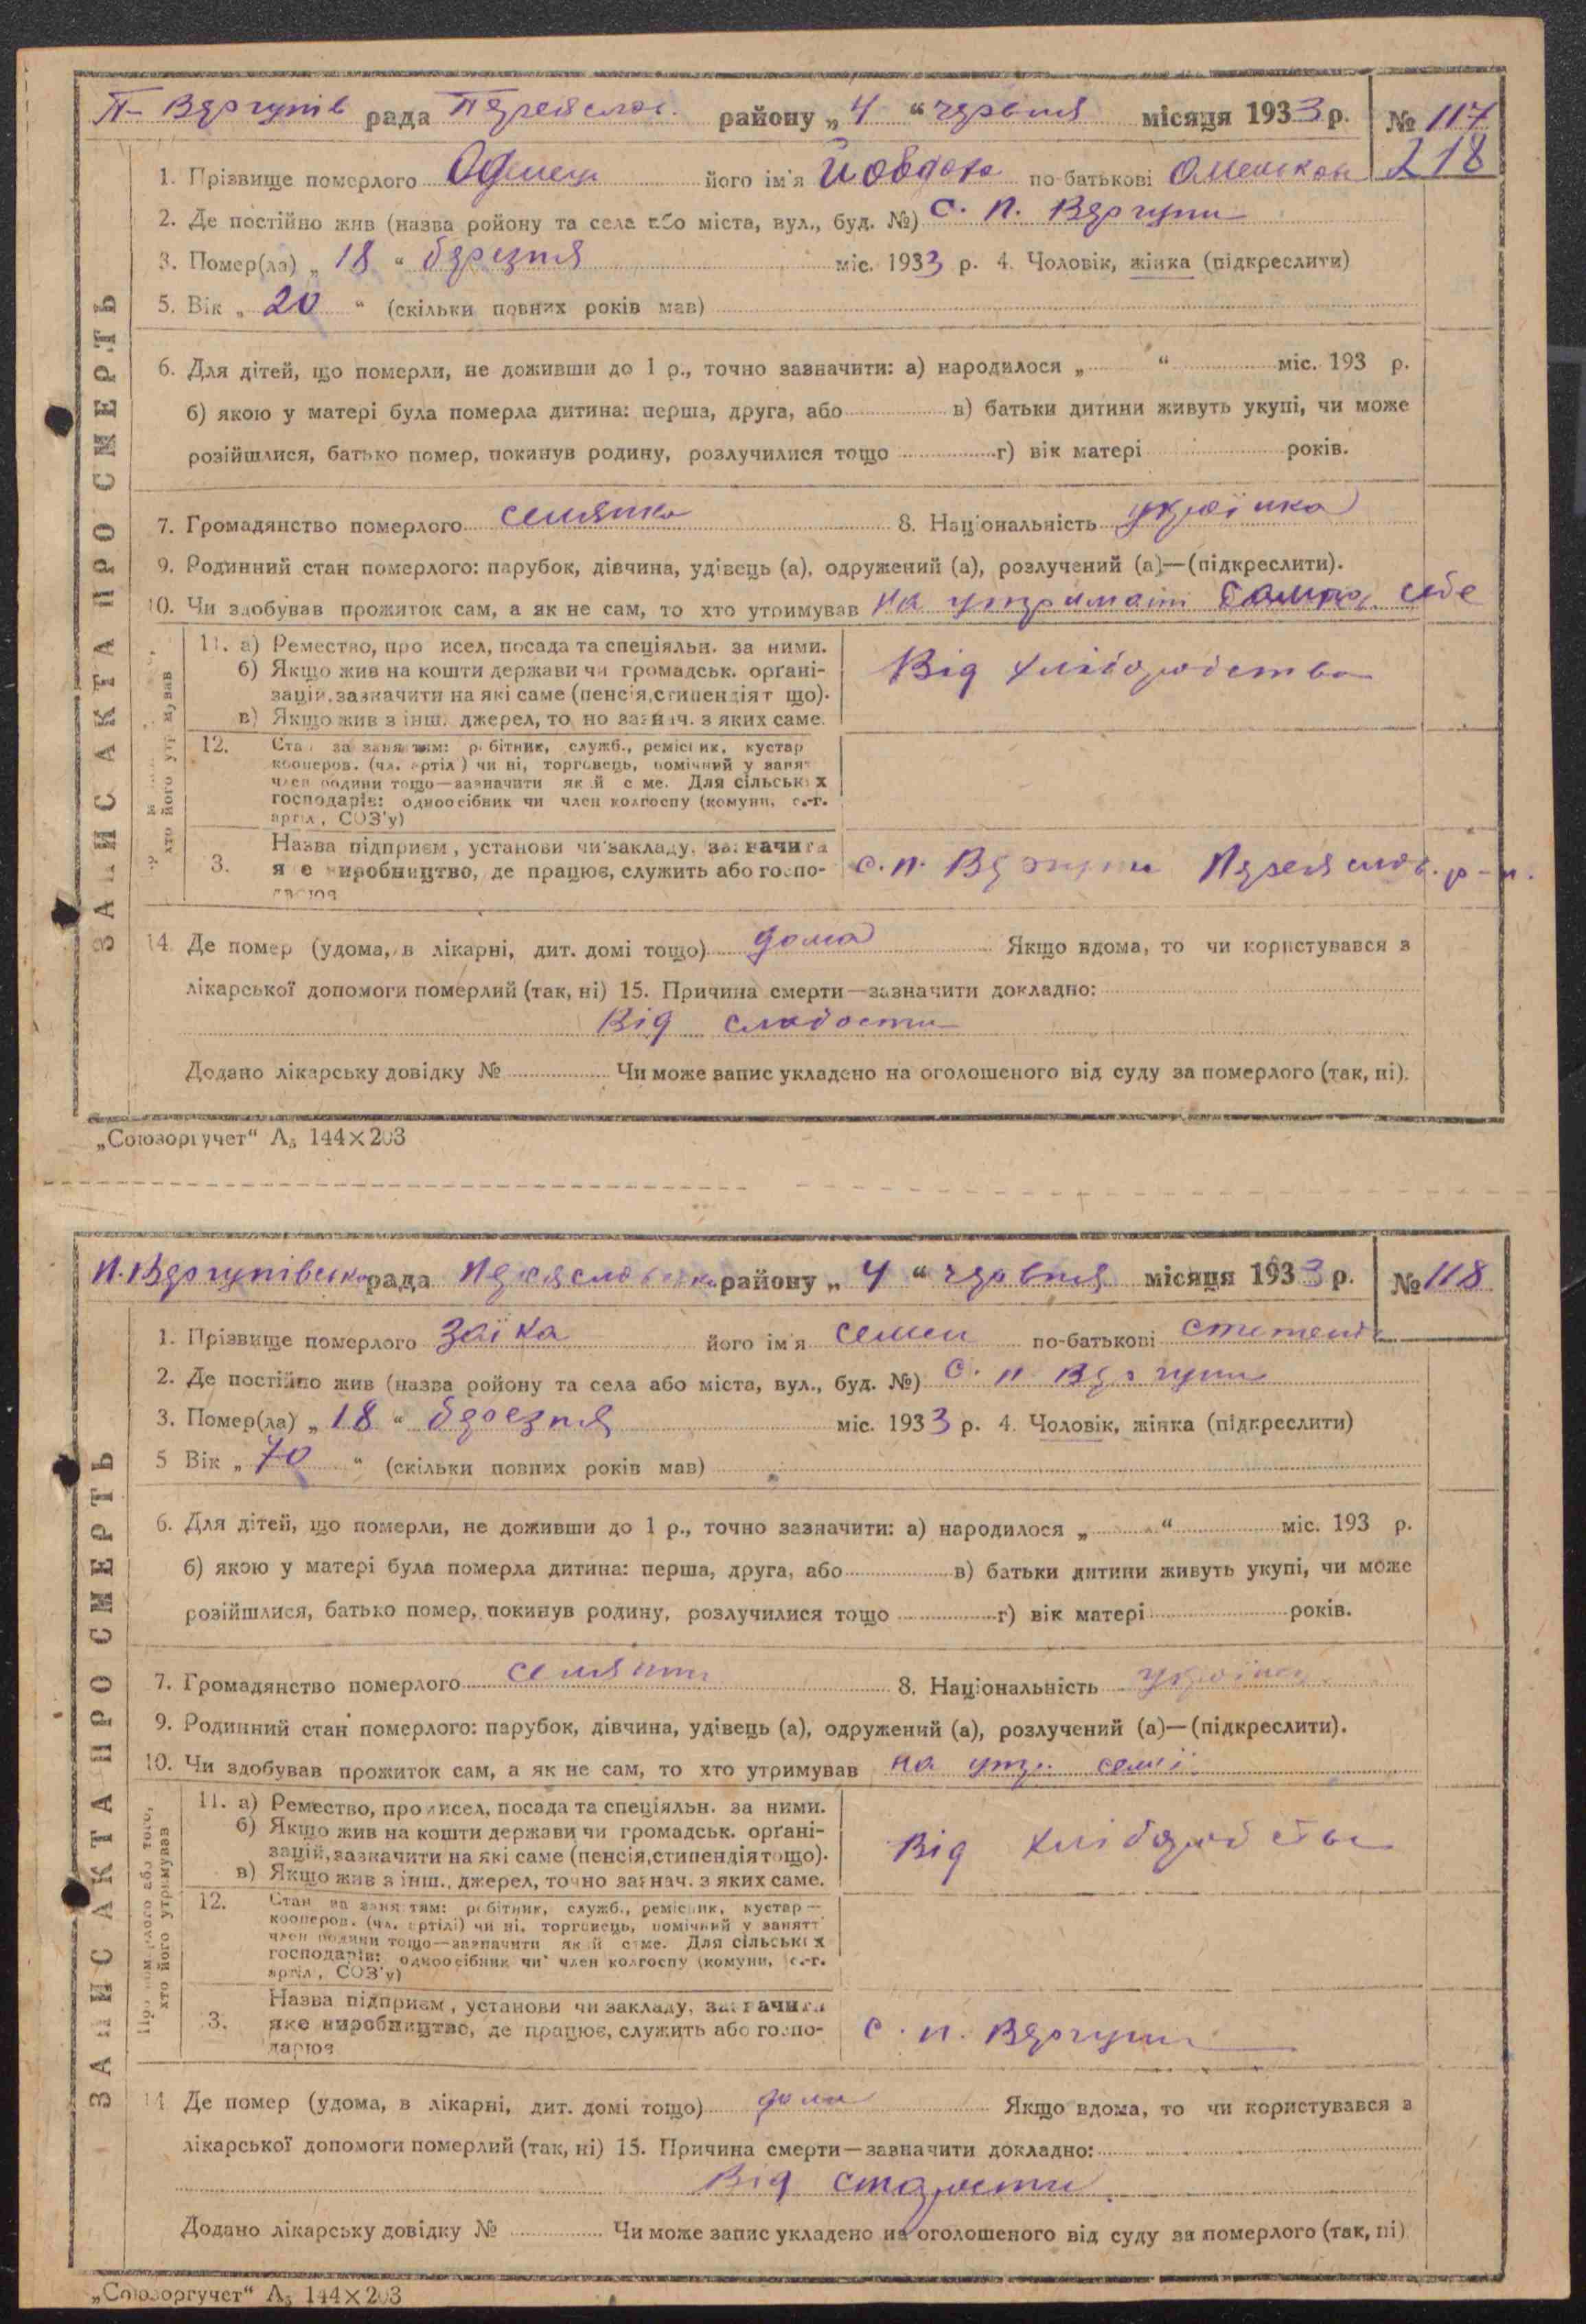 П- Вяргунів рада Пяреяслов. району „ 4 “ чярвня місяця 1933 р. № 117
218
1. Прізвище померлого його ім'я по-батькові
2. Де постійно жив (назва ройону та села або міста, вул., буд. №) с. п. Вяргуни
3. Помер(ла) „ 18 “ бярезня міс. 1933 р. 4. Чоловік, жінка (підкреслити)
5. Вік „ 20 “ (скільки повних років мав)
6. Для дітей, що померли, не доживши до 1 р., точно зазначити: а) народилося „ “ міс. 193 р.
б) якою у матері була померла дитина: перша, друга, або в) батьки дитини живуть укупі, чи може
розійшлися, батько помер, покинув родину, розлучилися тощо г) вік матері років.
7. Громадянство померлого селянка 8. Національність українка
9. Родинний стан померлого: парубок, дівчина, удівець (а), одружений (а), розлучений (а)—(підкреслити).
10. Чи здобував прожиток сам, а як не сам, то хто утримував на утримані себе
11. а) Ремество, про исел, посада та спеціяльн. за ними.
б) Якщо жив на кошти держави чи громадськ. орґані-
зацій, зазначити на які саме (пенсія, стипендія т що).
в) Якщо жив з інш. джерел, то но зазнач. з яких саме.
Від хліборобства
12. Стан за заняттям: робітник, служб., ремісник, кустар
кооперов. (чл. артілі) чи ні, торговець, помічний у занят
член родини тощо—зазначити який саме. Для сільських
господарів: одноосібник чи член колгоспу (комуни, с.-г.
артіл, СОЗ'у)
3. Назва підприєм, установи чи закладу, зазначити
яке виробництво, де працює, служить або госпо-
дарює
с. п. Вяргуни Пяреяслов. р-н.
ЗАПИС АКТА ПРО СМЕРТЬ
хто його утримував
14. Де помер (удома, в лікарні, дит. домі тощо) дома Якщо вдома, то чи користувався з
лікарської допомоги померлий (так, ні) 15. Причина смерти—зазначити докладно:
Від слабости
Додано лікарську довідку № Чи може запис укладено на оголошеного від суду за померлого (так, ні).
„Союзоргучет“ А₅ 144×203
П. Вяргунівська рада Пяреяславська району „ 4 “ чярвня місяця 1933 р. № 118
1. Прізвище померлого Заїка його ім'я Семен по-батькові
2. Де постійно жив (назва ройону та села або міста, вул., буд. №) с. п Вяргуни
3. Помер(ла) „ 18 “ бярезня міс. 1933 р. 4. Чоловік, жінка (підкреслити)
5 Вік „ 70 “ (скільки повних років мав)
6. Для дітей, що померли, не доживши до 1 р., точно зазначити: а) народилося „ “ міс. 193 р.
б) якою у матері була померла дитина: перша, друга, або в) батьки дитини живуть укупі, чи може
розійшлися, батько помер, покинув родину, розлучилися тощо г) вік матері років.
7. Громадянство померлого селянин 8. Національність українец
9. Родинний стан померлого: парубок, дівчина, удівець (а), одружений (а), розлучений (а)—(підкреслити).
10. Чи здобував прожиток сам, а як не сам, то хто утримував на утр. семї
11. а) Ремество, промисел, посада та спеціяльн. за ними.
б) Якщо жив на кошти держави чи громадськ. орґані-
зацій, зазначити на які саме (пенсія, стипендія тощо).
в) Якщо жив з інш. джерел, точно зазнач. з яких саме.
Від хліборобства
12. Стан за заняттям: робітник, служб., ремісник, кустар—
кооперов. (чл. артілі) чи ні, торговець, помічний у занятт
член родини тощо—зазначити який саме. Для сільських
господарів: одноосібник чи член колгоспу (комуни, с.-г.
артіл, СОЗ'у)
3. Назва підприєм, установи чи закладу, зазначити
яке виробництво, де працює, служить або госпо-
дарює
с. п. Вяргуни
ЗАПИС АКТА ПРО СМЕРТЬ
Про померлого або того,
хто його утримував
14 Де помер (удома, в лікарні, дит. домі тощо) дома Якщо вдома, то чи користувався з
лікарської допомоги померлий (так, ні) 15. Причина смерти—зазначити докладно:
Від старости
Додано лікарську довідку № Чи може запис укладено на оголошеного від суду за померлого (так, ні)
„Союзоргучет“ А₅ 144×203